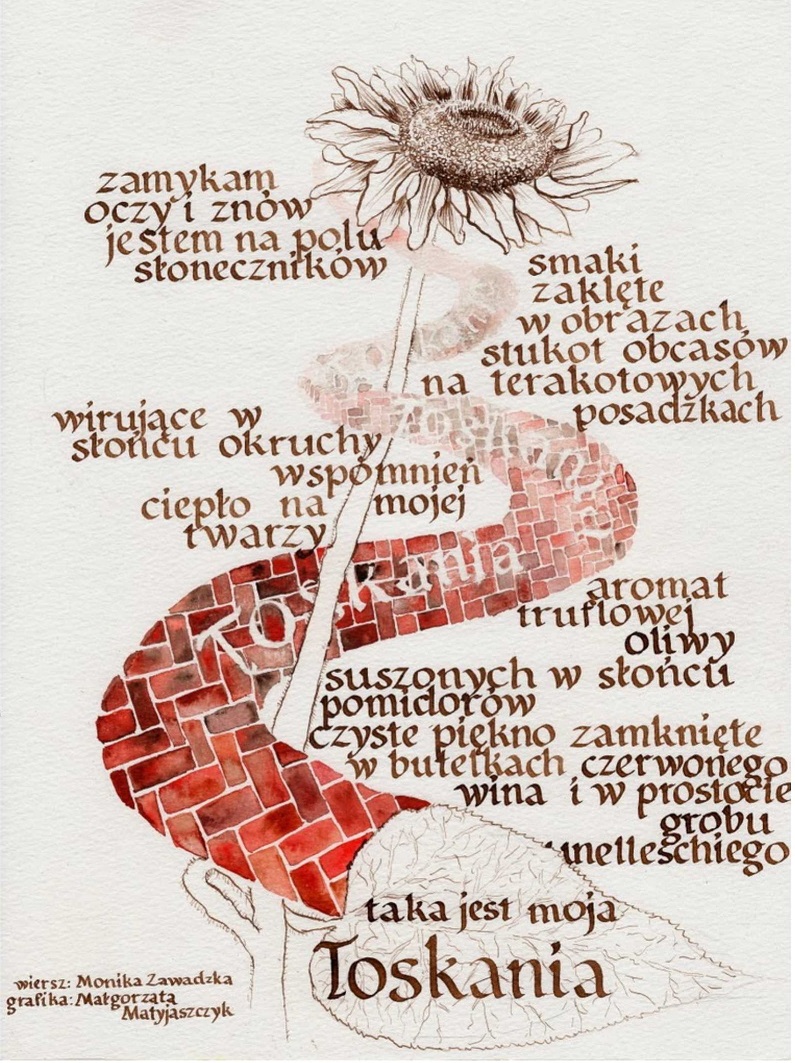 zamykam
oczy i znów
jestem na polu
słoneczników
smaki
zaklęte
w obrazach
stukot obcasów
na terakotowych
posadzkach
wirujące w
słońcu okruchy
wspomnień
ciepło na mojej
twarzy
Toskania
Toskania
aromat
truflowej
oliwy
suszonych w słońcu
pomidorów
czyste piękno zamknięte
w butelkach czerwonego
wina i w prostocie
grobu
unelleschiego
taka jest moja
Toskania
wiersz: Monika Zawadzka
grafika: Małgorzata
Matyjaszczyk